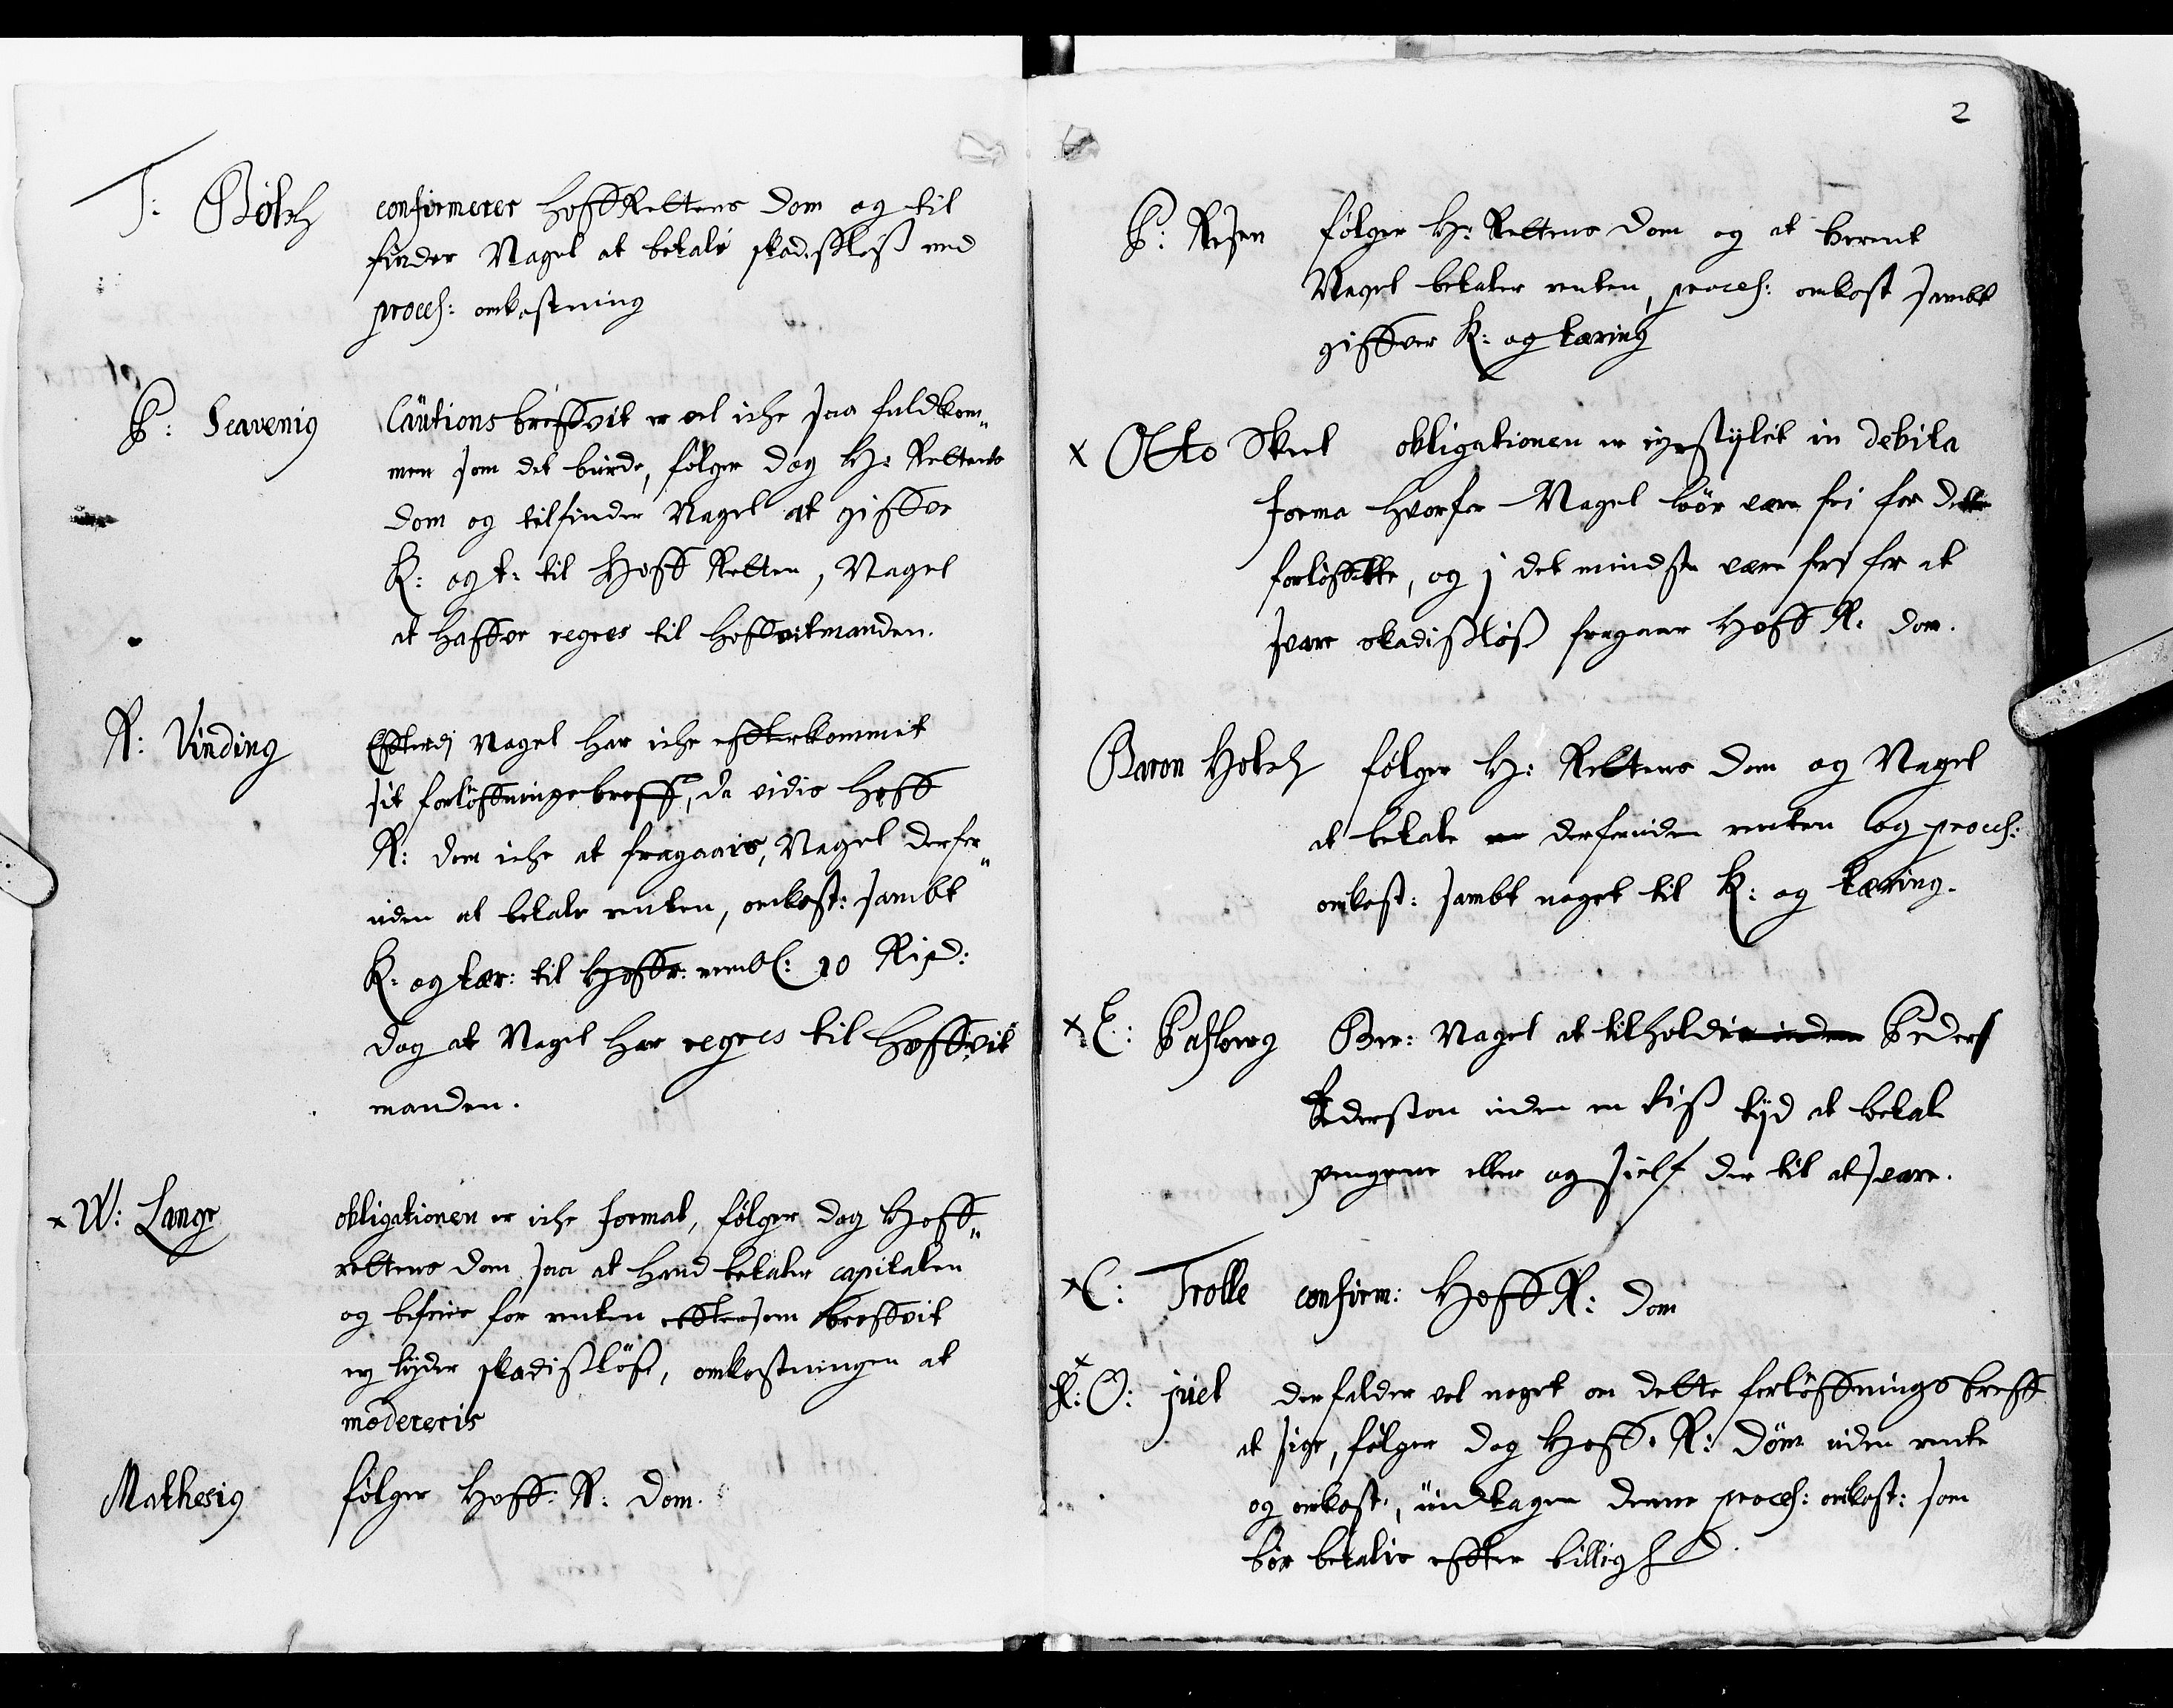 T: Bølch confirmerer HoffRettens Dom og til
finder Nagel at betale skadisløß med
process: omkostning
P: Scavenius Cautions breffvit er vel iche saa fuldkom„
men som det burde, følger dog H: Rettens
Dom og tilfinder Nagel at giffve
K: og t: til Hoff Retten, Nagel
at haffve regres til Hoffvitmanden.
R: Vinding Efterdj Nagel har iche effterkommit
sit forløffningsbreff, da vidis Hoff
R: dom iche at fragaais, Nagel derfor„
uden at betale renten, omkost: sambt
K: og tær: til Hoffr: 10 Rixd:
dog at Nagel har regres til Hoffvit
manden.
x W: Lange obligationen er iche formal, følger dog Hoff„
rettens dom saa at hand betaler capitalen
og befries for renten efftersom breffvit
ey lyder skadisløß, omkostningen at
modereris
Mathesius følger Hoff: R: Dom.
2
P: Resen følger H: Rettens Dom og at Berent
Nagel betaler renten, process: omkost sambt
giffver K: og tæring
x Otto Skeel obligationen er ey stylet in debita
forma hvorfor Nagel bør være fri for dette
forløffte, og j det mindste være fri for at
svare skadisløß fragaar Hoff R: dom.
Baron Holch følger H: Rettens Dom og Nagel
at betale derforuden renten og process:
omkost: sambt noget til K: og tæring.
x E: Ber: Nagel at tilholde Peder
Pedersøn inden en viß tijd at betale
pengene eller og sielf der til at svare.
x C: Trolle confirm: Hoff R: Dom
x
K: O: juel der falder vel noget om dette forløffnings breff
at sige, følger dog Hoff: R: Døm uden rente
og omkost:, undtagen denne process: omkost: som
bør betalis effter billighed.